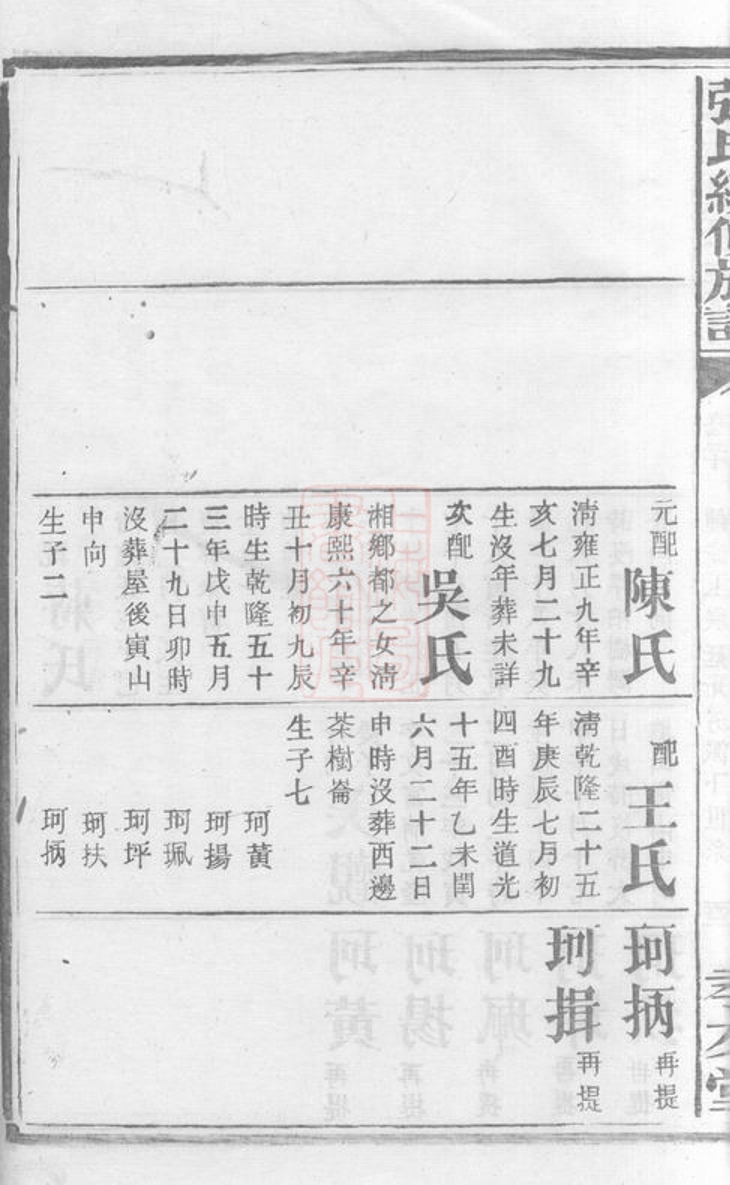 張氏續修族譜
元配陳氏
淸雍正九年辛
亥七月二十九
生沒年葬未詳
次配吳氏
湘鄉都之女淸
康熙六十年辛
丑十月初九辰
時生乾隆五十
三年戊申五月
二十九日卯時
沒葬屋後寅山
申向
生子二
配王氏
淸乾隆二十五
年庚辰七月初
四酉時生道光
十五年乙未閏
六月二十二日
申時沒葬西邊
茶樹崙
生子七
珂黃
珂揚
珂珮
珂坪
珂扶
珂抦
珂抦再提
珂揖再提